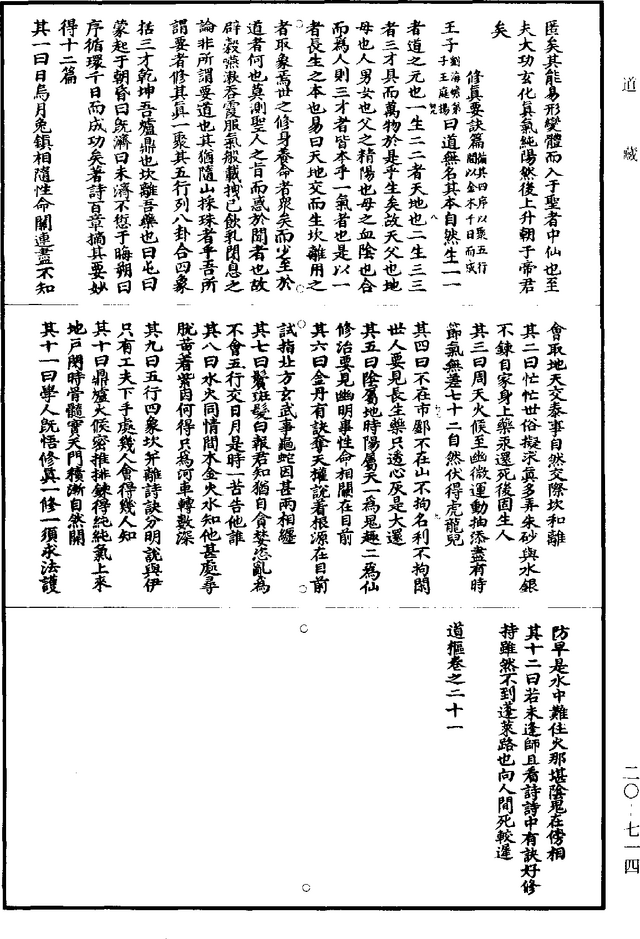 道藏
匿矣其能易形變體而入于聖者中仙也至
夫大功玄化真氣純陽然後上升朝于帝君
矣
修真要訣篇攝其四序以聚五行間以金木千日而成
王子劉海蟾弟子王庭揚曰道無名其本自然生一一
者道之元也一生二二者天地也二生三三
者三才具而萬物於是乎生矣故天父也地
母也人男女也父之精陽也母之血陰也合
而為人則三才者皆本乎一氣者也是以一
者長生之本也易曰天地交而生坎離用之
者取象焉世之修身養命者衆矣而少至於
道者何也莫測聖人之旨而惑於間者也故
辟穀嚥漱吞霞服氣般載拽已飲乳閉息之
論非所謂要道也其猶隨山採珠者乎吾所
謂要者修其真一聚其五行列八卦合四象
括三才乾坤吾爐鼎也坎離吾藥也曰屯曰
蒙起于朝昏曰既濟曰未濟不愆于晦朔曰
序循環千日而成功矣著詩百章摘其要妙
得十二篇
其一曰日烏月兔鎮相隨性命關連盡不知
會取地天交泰事自然交際坎和離
其二曰忙忙世俗擬求真多弄朱砂與水銀
不鍊自家身上藥汞還死後固生人
其三曰周天火候至幽微運動抽添盡有時
節氣無差七十二自然伏得虎龍兒
其四曰不在市鄽不在山不拘名利不拘閑
世人要見長生藥只透心灰是大還
其五曰陰屬地時陽屬天一為鬼趣二為仙
修治要見幽明事性命相關在目前
其六曰金丹有訣奪天權說着根源在目前
試指北方玄武事龜蛇因甚兩相纏
其七曰鬢斑髮白報君知猶自貪婪恣亂為
不會五行交日月是時一苦告他誰
其八曰水火同情間本金火水知他甚處尋
脫黃著紫因何得只為河車轉數深
其九曰五行四象坎并離詩訣分明說與伊
只有工夫下手處幾人會得幾人知
其十曰鼎爐火候密推排鍊得純純氣上來
地戶閉時骨髓實天門積漸自然開
其十一曰學人既悟修真一修一須求法護
防早是水中難住火那堪陰鬼在傍相
其十二曰若未逢師且看詩詩中有訣好修
持雖然不到蓬萊路也向人間死較遲
道樞卷之二十一
二〇·七一四